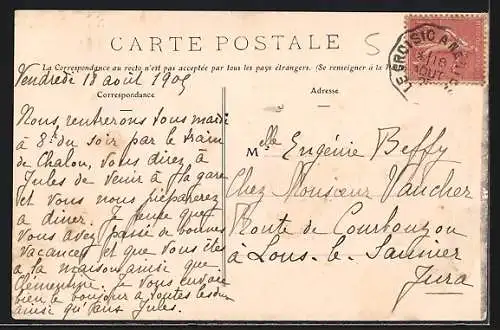 CARTE POSTALE
5
La Correspondance au recto n'est pas acceptée par tous les pays étrangers. (Se renseigner à la
Vendredi 18 août 1905
Correspondance
Adresse
LE CROISIC A
18
AOUT
Nous rentrerons tous mardi
à 8h du soir par le train
de Chalon, vous direz à
Jules de venir à la gare
et vous nous préparerez
à diner. Je pense que
vous avez passé de bonnes
vacances et que vous êtes
à la maison ainsi que
Clémentine. Je vous envoie
bien le bonjour à toutes les deux
ainsi qu'au Jules.
Melle Eugénie Beffy
Chez Monsieur Vaucher
Route de Courbouzon
à Lons-le-Saunier
Jura